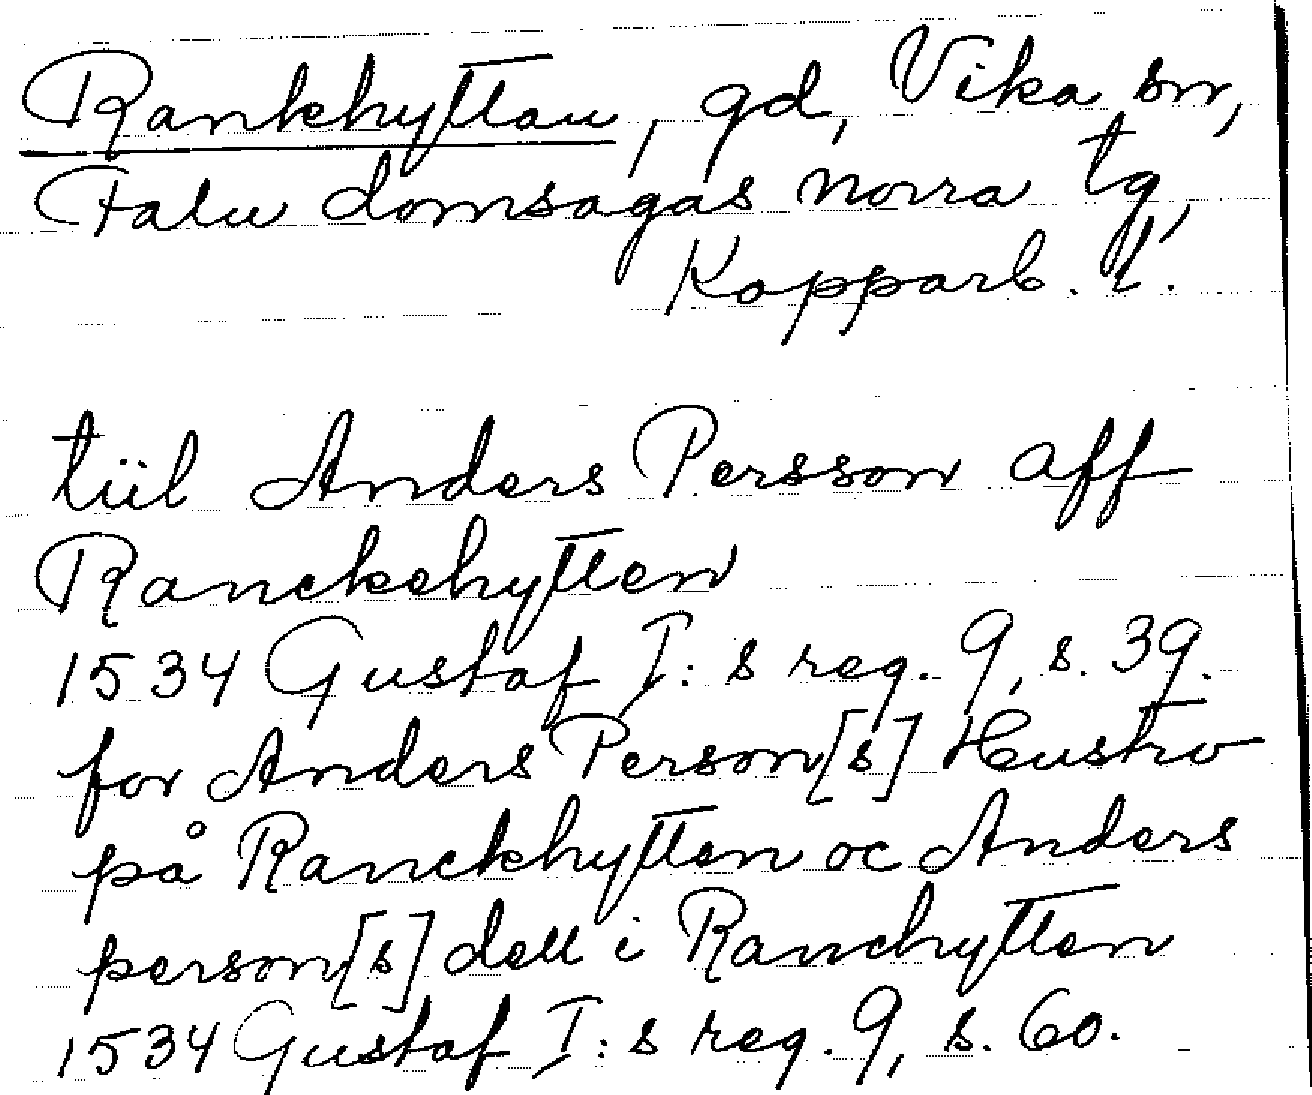 Rankhyttan, gd, Vika sn,
Falu domsagas norra tg,
Kopparb. l.
tiil Anders Persson aff
Ranckehytten
1534 Gustaf I:s reg. 9, s. 39.
for Anders Person[s] Hustrv
på Ranckhytten oc Anders
person[s] dell i Ranchytten
1534 Gustaf I:s reg. 9, s. 60.